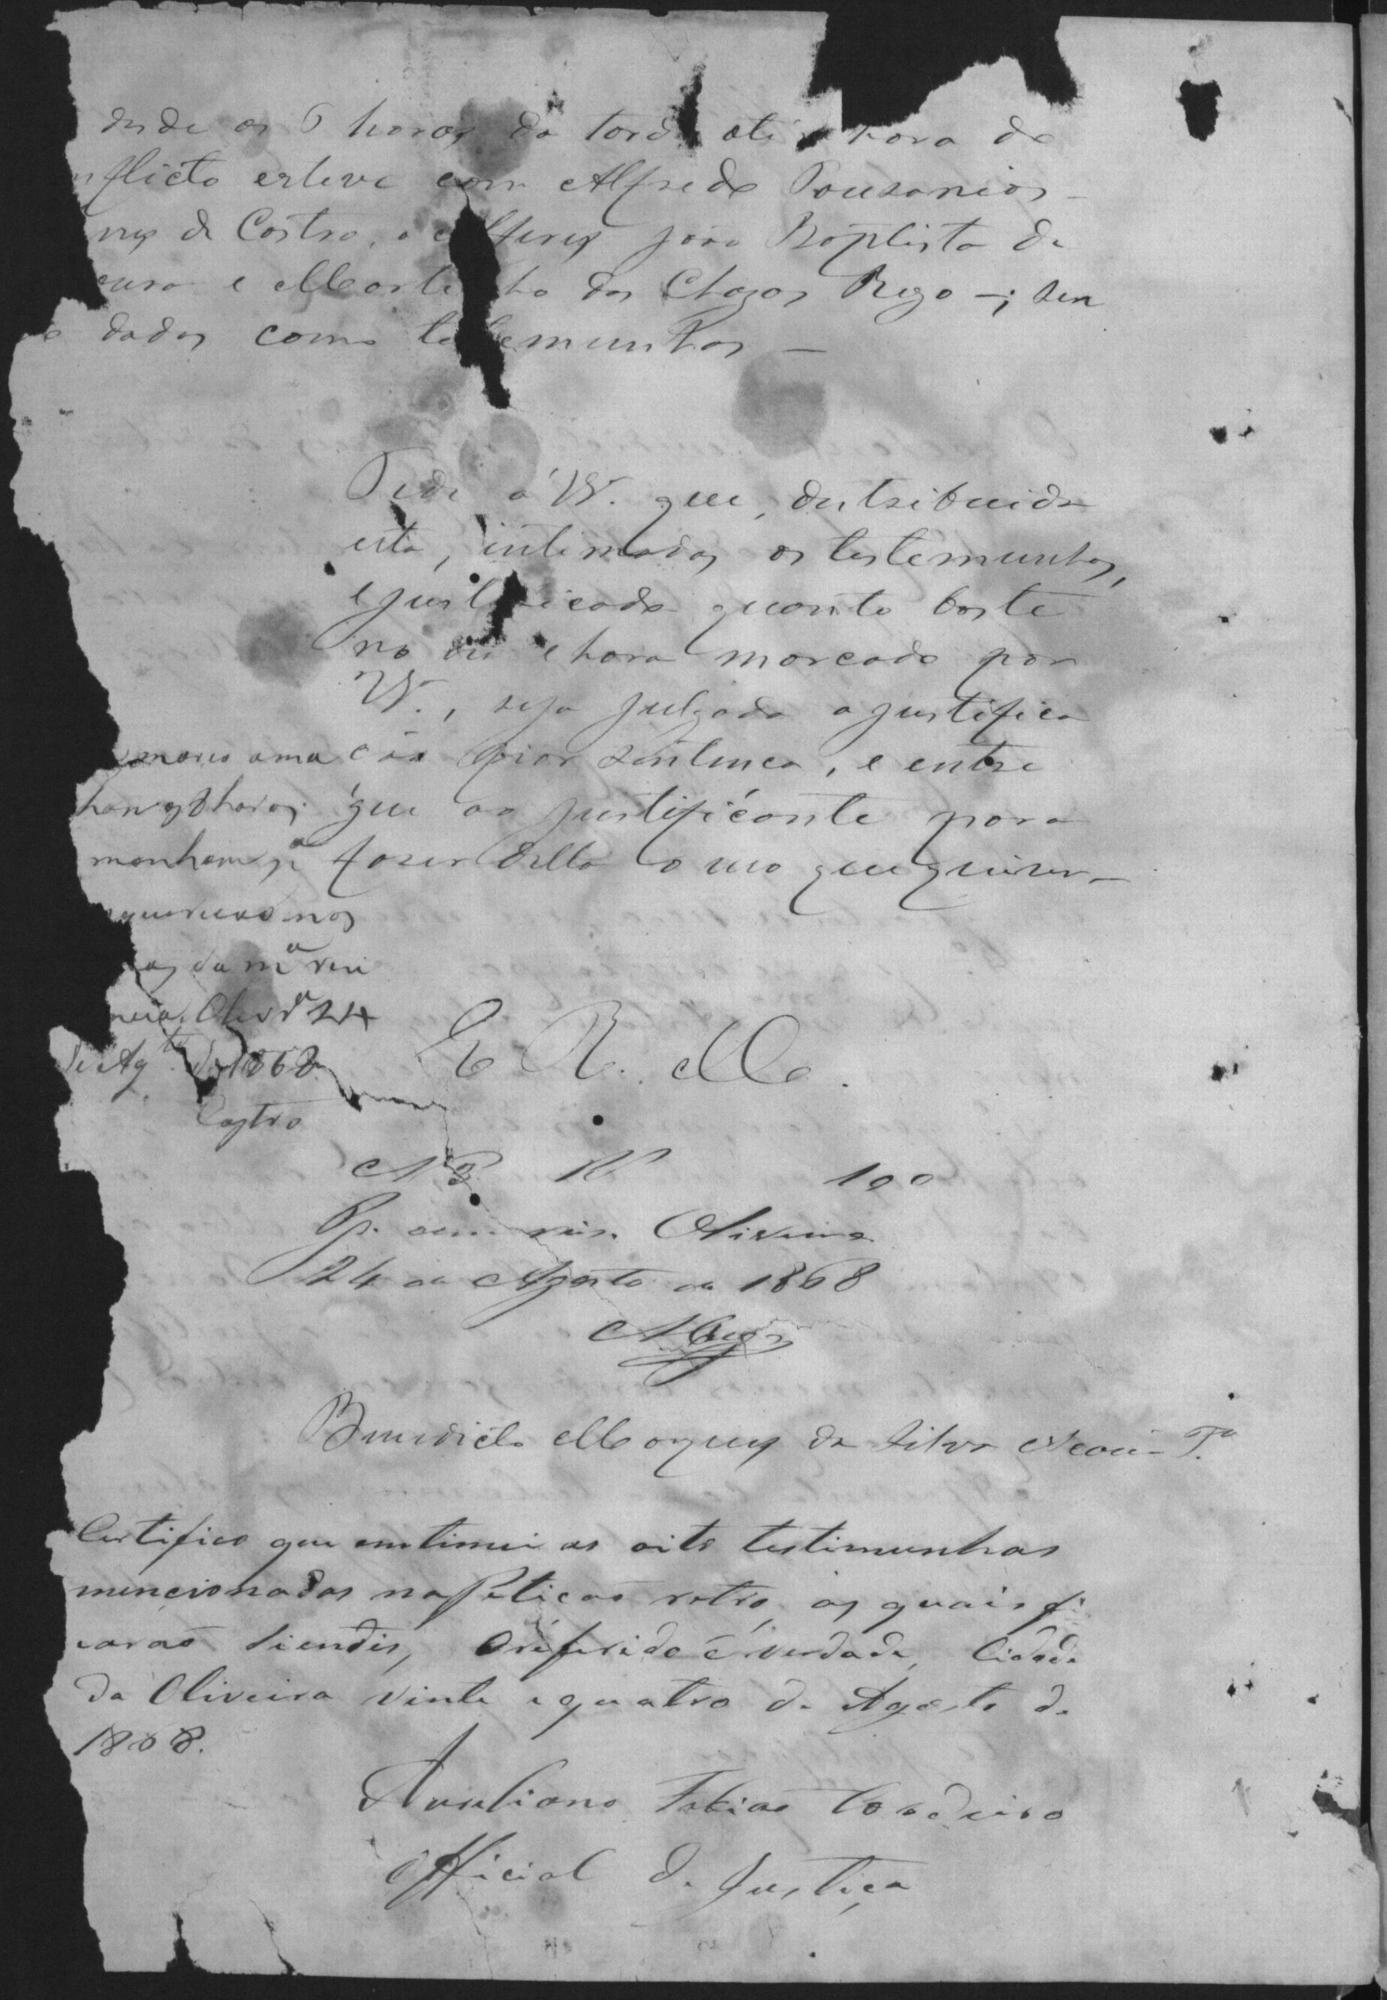 desde as 6 horas da tarde até a hora do
nflicto esteve com Alfredo Pousanias
nes de Castro, o Alferes João Baptista de
ousa e Martinho das Chagas Rego —; sen
dados como testemunhas —
Pede a VV. que, destribuida
esta, intimadas as testemunhas,
e justificado quanto baste
no dia e hora marcado por
VV., seja julgada a justifica
ção por sentença, e entre
gue ao justificante para
fazer della o uso que quiser —
manhem
querer nos
as da mª resi
ncia. Olivrª 24
de Agto. de 1868.
Castro
E. R. M.
Nº R 100
Pg. cem reis. Oliveira
24 de Agosto de 1868
Benedicto Marques da Silva
Certifico que entimei as oito testimunhas
mencionadas na Petição retro, as quais fi
carão siendis, O referido é verdade, Cidade
da Oliveira vinte e quatro de Agosto de
1868.
Aureliano Tobias Cordeiro
Official de Justiça